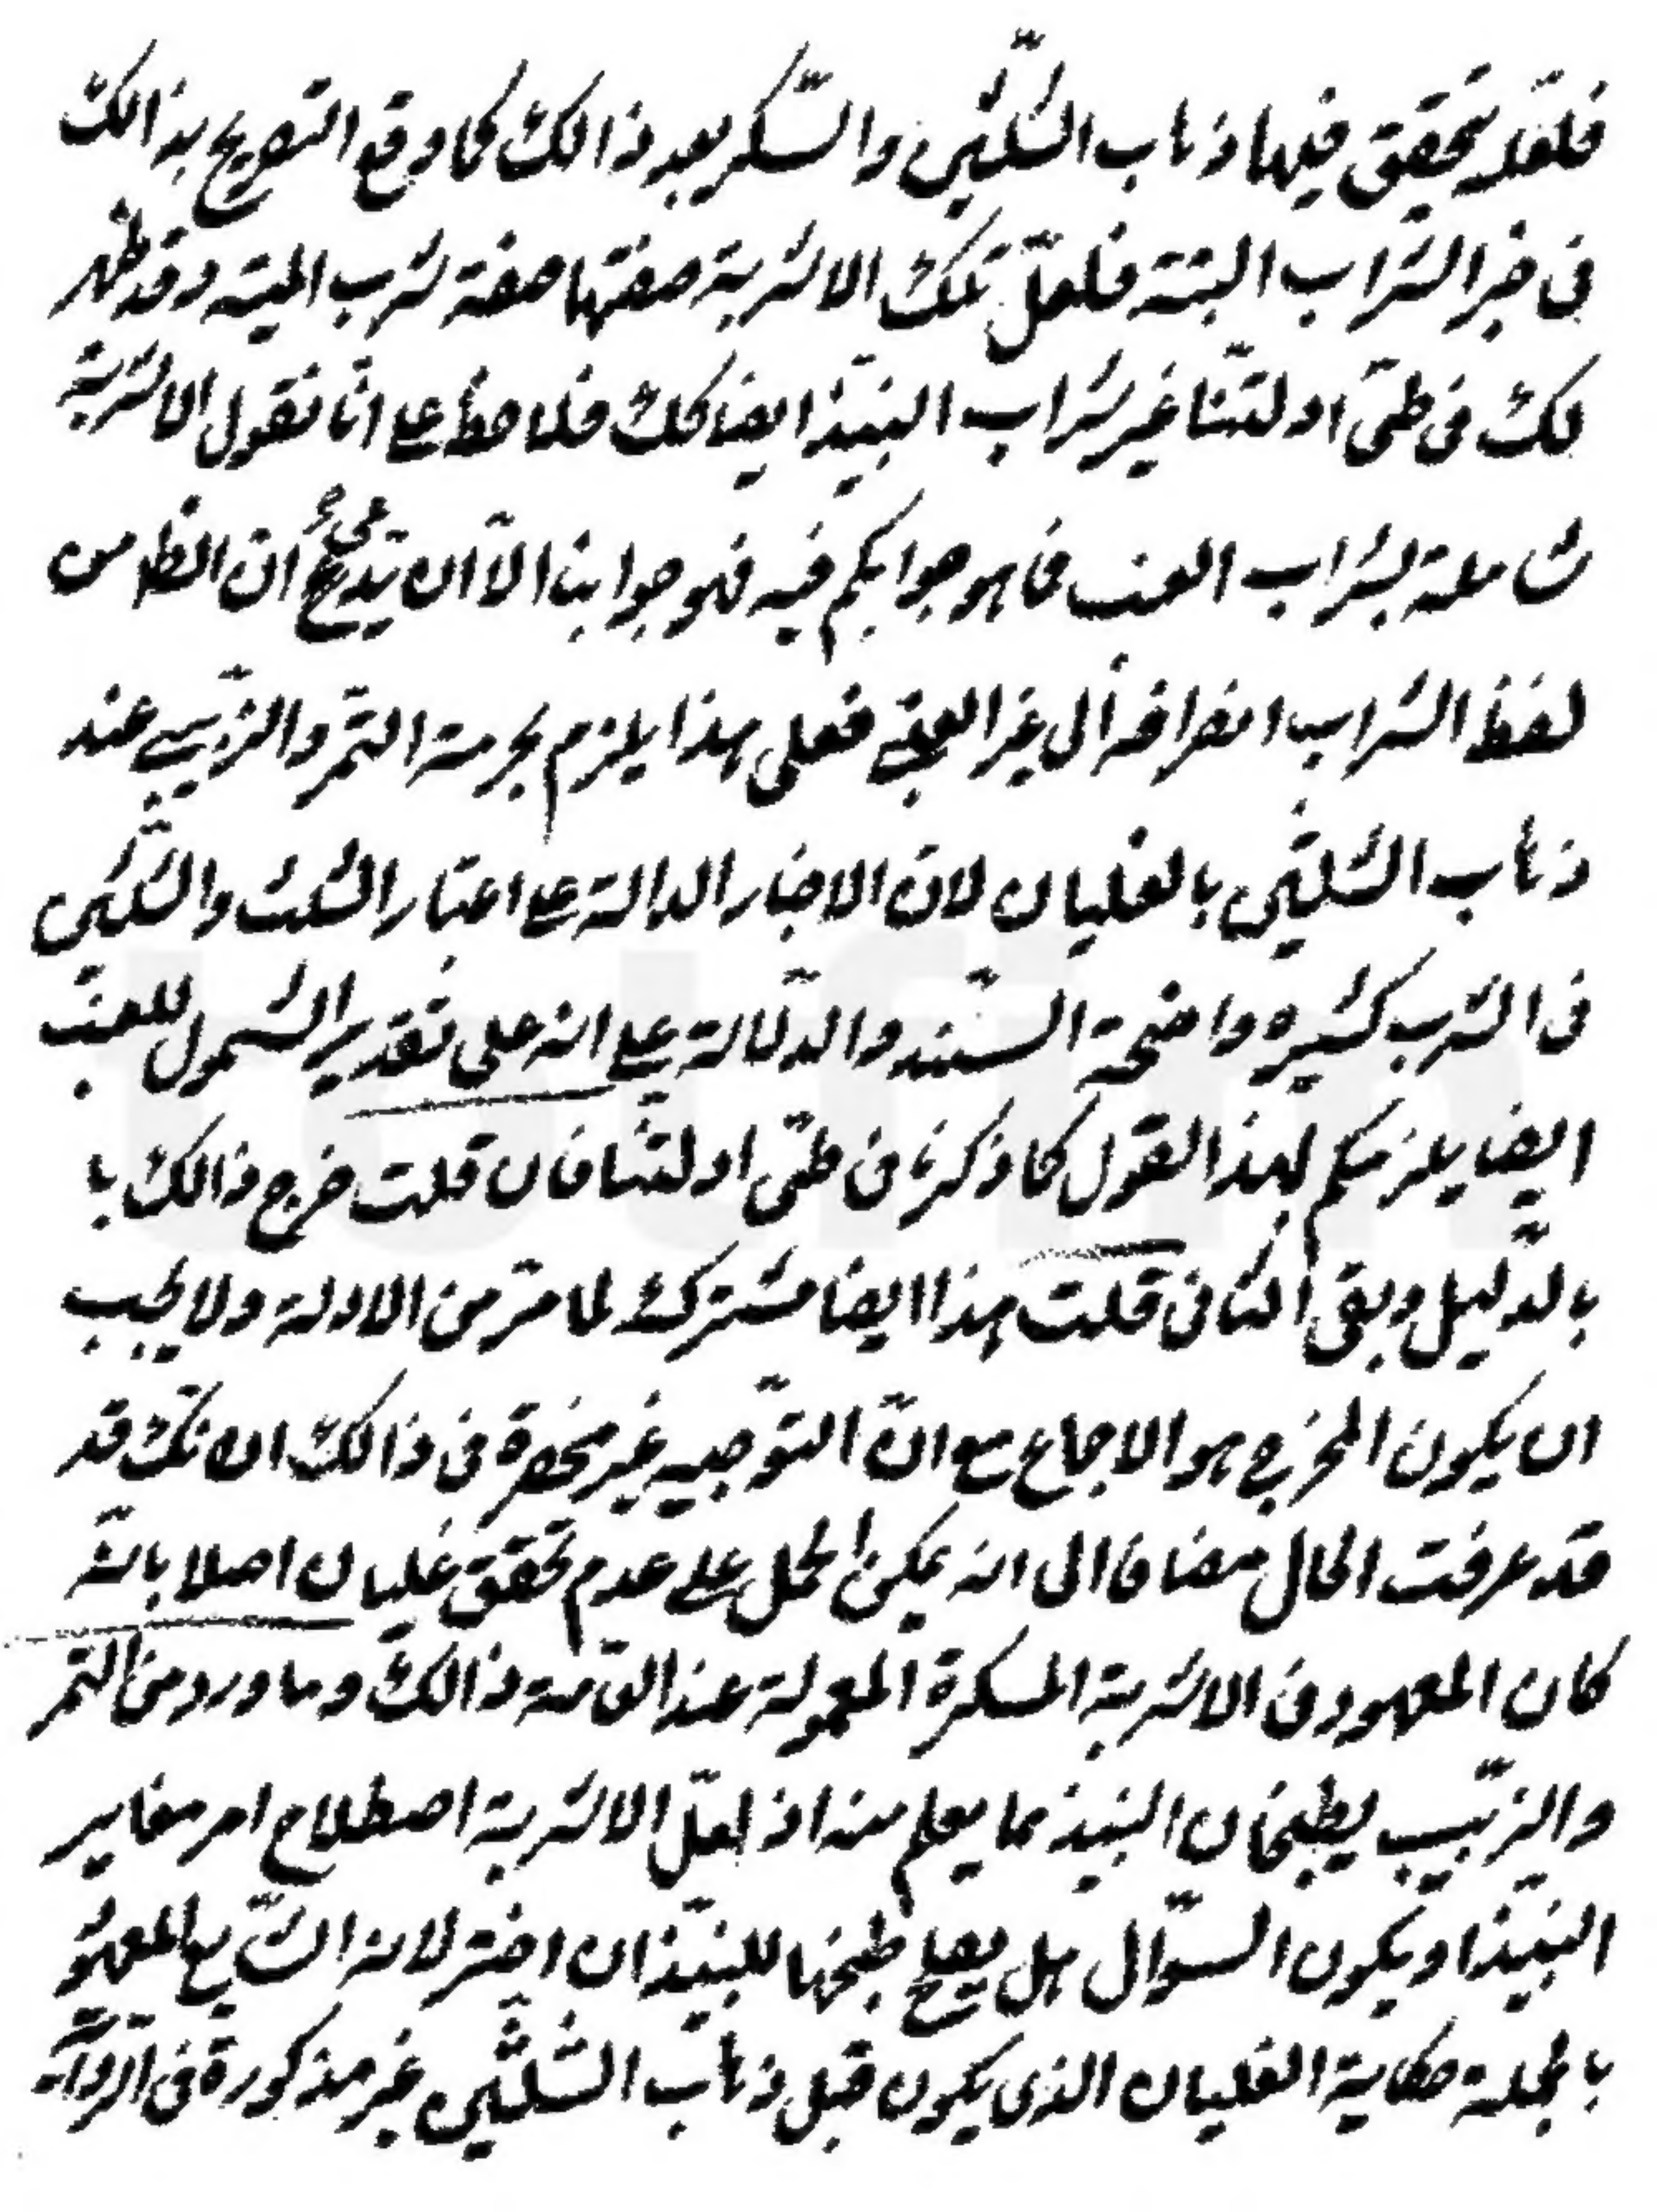 فلعله تحقق فيها ذهاب الثلثين والسكر بعد ذالك كما وقع التصريح بذالك
فى خبر الشراب البتة فلعل تلك الاشربة صفتها صفة شرب الميتة وقد ظهر
لك فى طى ادلتنا غير شراب النبيذ ايضا كك فلاحظ على انا نقول الاشربة
شاملة لشراب العنب فما هو جوابكم فيه فهو جوابنا الا ان تدعى ان الظاهر من
لفظ الشراب انصرافه الى غير العنبى فعلى هذا يلزم بحرمة التمر والزبيب عند
ذهاب الثلثين بالغليان لان الاخبار الدالة على اعتبار الثلث والثلثين
فى الشرب كثيره واضحة السند والدلالة على انه على تقدير الشمول للعنب
ايضا يلزمكم لهذا القول كما ذكرنا فى طى ادلتنا فان قلت خرج ذالك با
بالدليل وبقى الثانى قلت هذا ايضا مشترك لما مر من الادلة ولا يجب
ان يكون المخرج هو الاجماع مع ان التوجيه غير منحصرة فى ذالك انك قد
قد عرفت الحال مضافا الى انه يمكن الحمل على عدم تحقق غليان اصلا بانه
كان المعهود فى الاشربة المسكرة المعمولة عند العامة ذالك وما ورد من التمر
والزبيب يطبخان النبيذ مما يعلم منه اذ لعل الاشربة اصطلاح امر مغاير
النبيذ او يكون السؤال هل يصلح طبخها للنبيذ ان اختر لانه الشايع المعهود
بالجملة حكاية الغليان الذى يكون قبل ذهاب الثلثين غير مذكورة فى الرواية